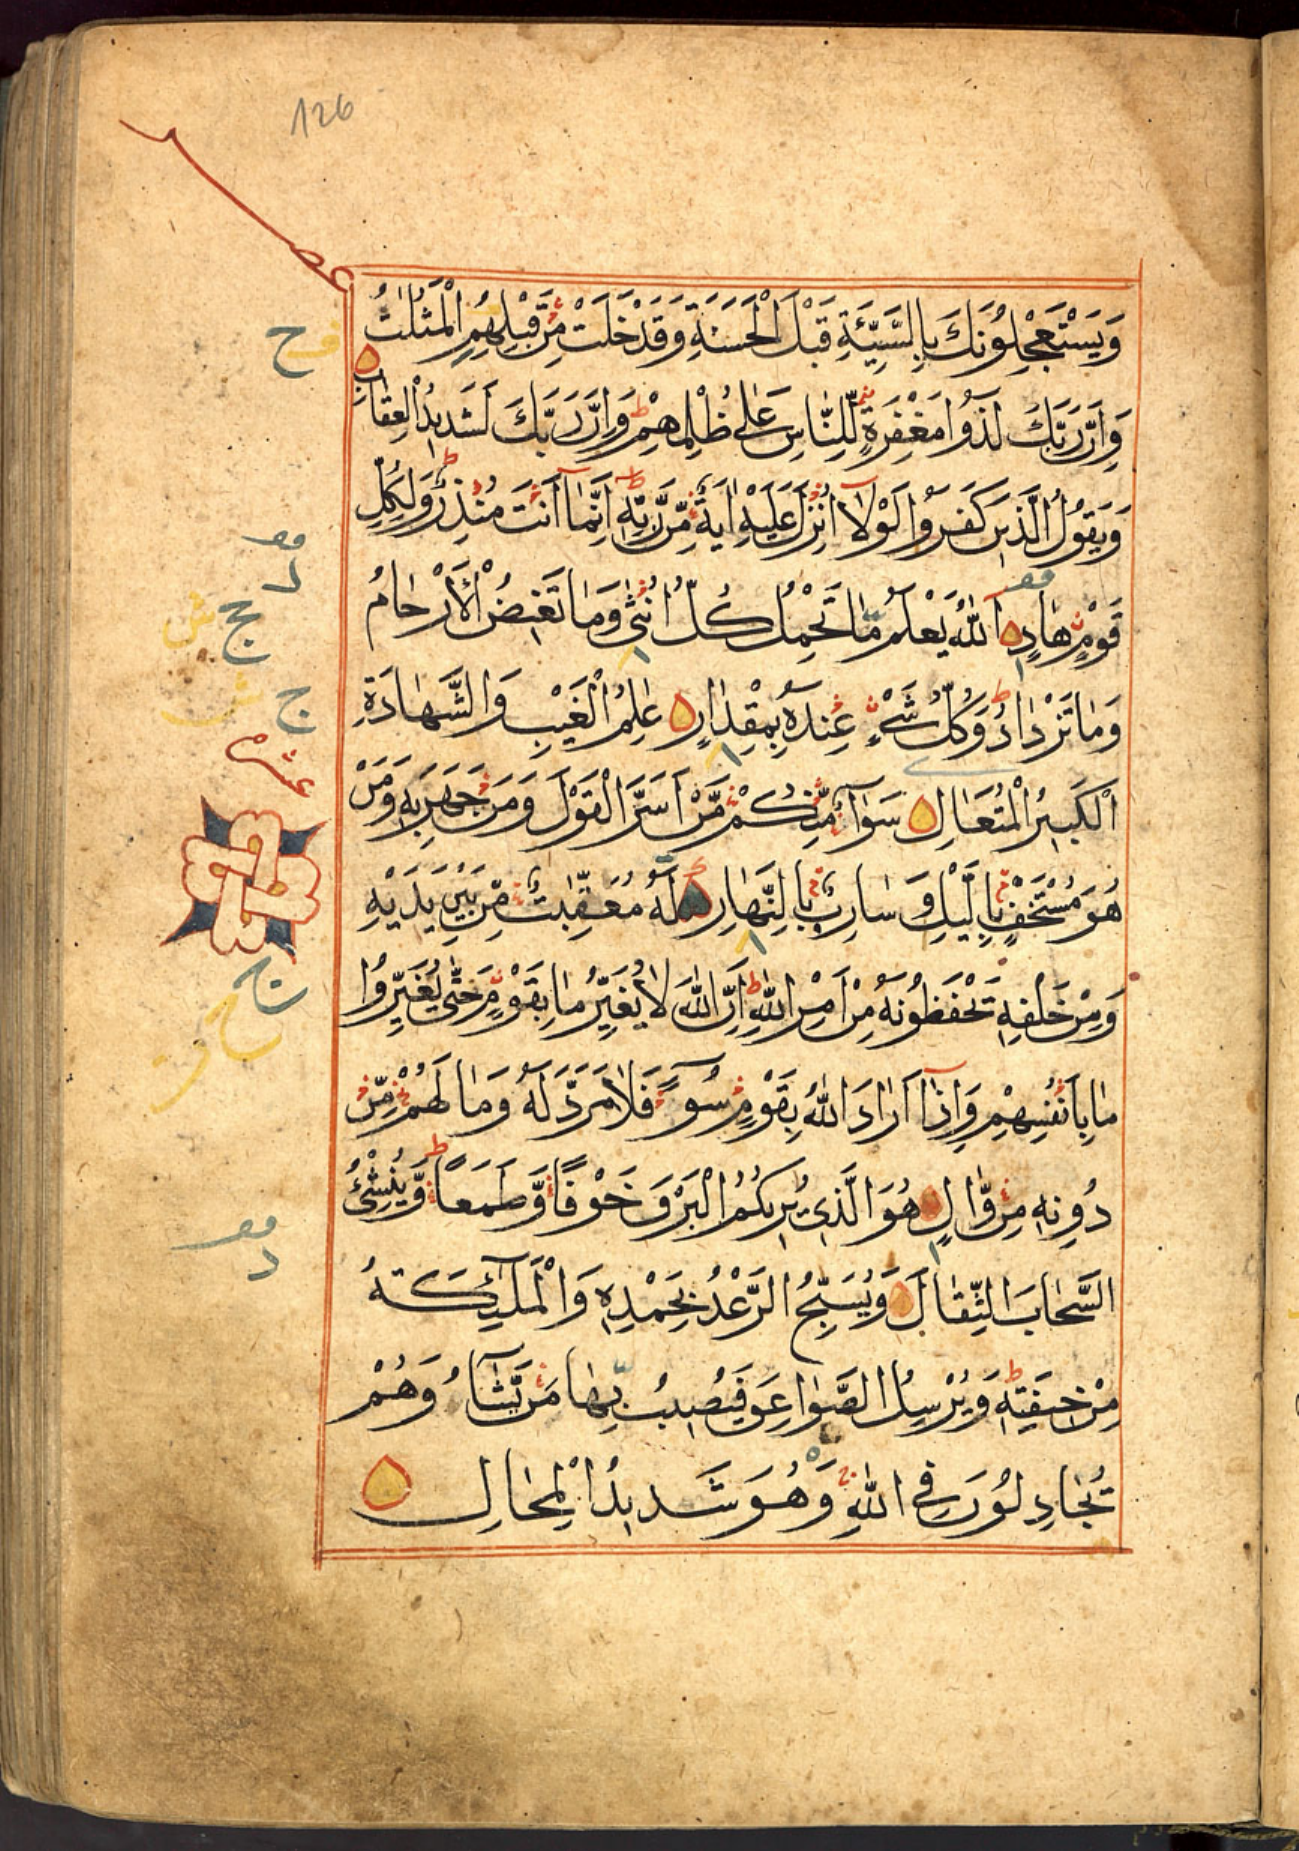 126
وَيَسْتَعْجِلُونَكَ بِالسَّيِّئَةِ قَبْلَ الْحَسَنَةِ وَقَدْ خَلَتْ مِنْ قَبْلِهِمُ الْمَثُلٰتُ
وَاِنَّ رَبَّكَ لَذُوا مَغْفِرَةٍ لِلنَّاسِ عَلٰى ظُلْمِهِمْ وَاِنَّ رَبَّكَ لَشَدِيدُ الْعِقَابِ
وَيَقُولُ الَّذِينَ كَفَرُوا لَوْلَآ اُنْزِلَ عَلَيْهِ اٰيَةٌ مِّنْ رَّبِّهٖ اِنَّمَآ اَنْتَ مُنْذِرٌ وَلِكُلِّ
قَوْمٍ هَادٍ اَللّٰهُ يَعْلَمُ مَا تَحْمِلُ كُلُّ اُنْثٰى وَمَا تَغِيضُ الْاَرْحَامُ
وَمَا تَزْدَادُ وَكُلُّ شَيْءٍ عِنْدَهٗ بِمِقْدَارٍ عٰلِمُ الْغَيْبِ وَالشَّهَادَةِ
الْكَبِيرُ الْمُتَعَالِ سَوَآءٌ مِّنْكُمْ مَّنْ اَسَرَّ الْقَوْلَ وَمَنْ جَهَرَ بِهٖ وَمَنْ
عشره
هُوَ مُسْتَخْفٍ بِالَّيْلِ وَسَارِبٌ بِالنَّهَارِ لَهٗ مُعَقِّبٰتٌ مِّنْ بَيْنِ يَدَيْهِ
وَمِنْ خَلْفِهٖ يَحْفَظُونَهٗ مِنْ اَمْرِ اللّٰهِ اِنَّ اللّٰهَ لَا يُغَيِّرُ مَا بِقَوْمٍ حَتّٰى يُغَيِّرُوا
مَا بِاَنْفُسِهِمْ وَاِذَآ اَرَادَ اللّٰهُ بِقَوْمٍ سُوٓءًا فَلَا مَرَدَّ لَهٗ وَمَا لَهُمْ مِّنْ
دُونِهٖ مِنْ وَّالٍ هُوَ الَّذِي يُرِيكُمُ الْبَرْقَ خَوْفًا وَّطَمَعًا وَّيُنْشِئُ
السَّحَابَ الثِّقَالَ وَيُسَبِّحُ الرَّعْدُ بِحَمْدِهٖ وَالْمَلٰٓئِكَةُ
مِنْ خِيفَتِهٖ وَيُرْسِلُ الصَّوَاعِقَ فَيُصِيبُ بِهَا مَنْ يَّشَآءُ وَهُمْ
يُجَادِلُونَ فِي اللّٰهِ وَهُوَ شَدِيدُ الْمِحَالِ